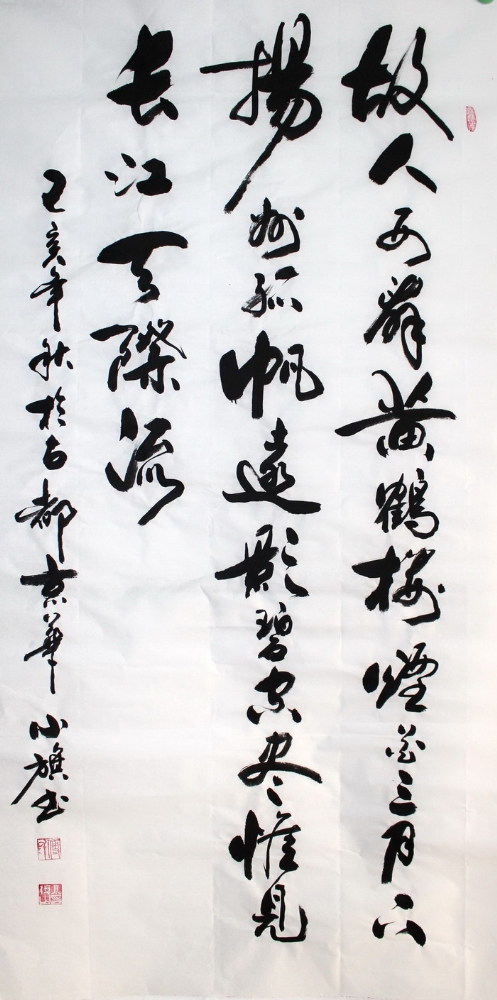 故人西辞黄鹤楼煙花三月下
揚州孤帆遠影碧空尽惟見
长江天際流
己亥年秋於古都京華小旗书